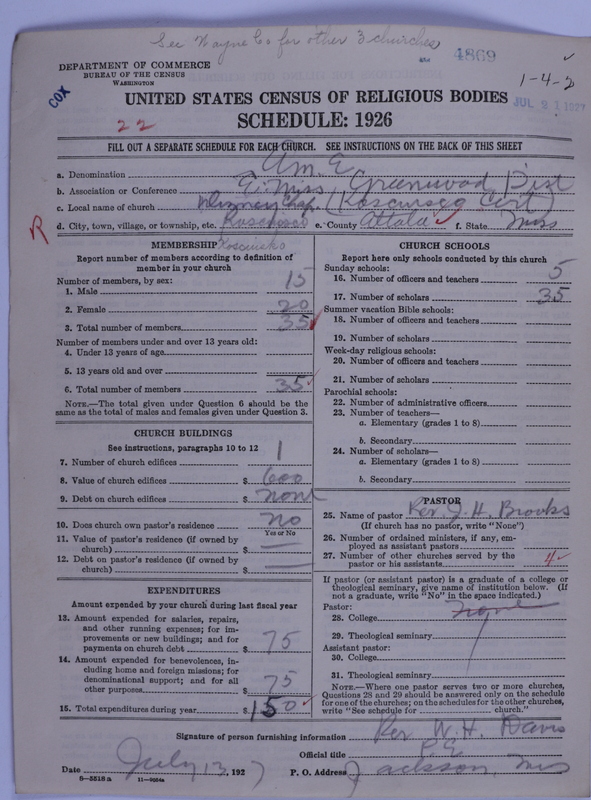 See Wayne Co for other 3 churches
4869
DEPARTMENT OF COMMERCE
BUREAU OF THE CENSUS
WASHINGTON
COX
1-4-2
JUL 21 1927
UNITED STATES CENSUS OF RELIGIOUS BODIES
22
SCHEDULE: 1926
FILL OUT A SEPARATE SCHEDULE FOR EACH CHURCH. SEE INSTRUCTIONS ON THE BACK OF THIS SHEET
a. Denomination A.M.E.
b. Association or Conference E. Miss Greenwood Dist
c. Local name of church Chap
d. City, town, village, or township, etc. e. County Attala f. State Miss
R
Kosciusko
MEMBERSHIP
Report number of members according to definition of
member in your church
Number of members, by sex:
1. Male 15
2. Female 20
3. Total number of members 35
Number of members under and over 13 years old:
4. Under 13 years of age
5. 13 years old and over
6. Total number of members 35
NOTE.—The total given under Question 6 should be the
same as the total of males and females given under Question 3.
CHURCH BUILDINGS
See instructions, paragraphs 10 to 12
7. Number of church edifices 1
8. Value of church edifices $ 600
9. Debt on church edifices $ none
10. Does church own pastor's residence no
Yes or No
11. Value of pastor's residence (if owned by
church) $ —
12. Debt on pastor's residence (if owned by
church) $ —
EXPENDITURES
Amount expended by your church during last fiscal year
13. Amount expended for salaries, repairs,
and other running expenses; for im-
provements or new buildings; and for
payments on church debt $ 75
14. Amount expended for benevolences, in-
cluding home and foreign missions; for
denominational support; and for all
other purposes $ 75
15. Total expenditures during year $ 150
CHURCH SCHOOLS
Report here only schools conducted by this church
Sunday schools:
16. Number of officers and teachers 5
17. Number of scholars 35
Summer vacation Bible schools:
18. Number of officers and teachers
19. Number of scholars
Week-day religious schools:
20. Number of officers and teachers
21. Number of scholars
Parochial schools:
22. Number of administrative officers
23. Number of teachers—
a. Elementary (grades 1 to 8)
b. Secondary
24. Number of scholars—
a. Elementary (grades 1 to 8)
b. Secondary
PASTOR
25. Name of pastor Rev. J. H. Brooks
(If church has no pastor, write "None")
26. Number of ordained ministers, if any, em-
ployed as assistant pastors
27. Number of other churches served by the
pastor or his assistants 4
If pastor (or assistant pastor) is a graduate of a college or
theological seminary, give name of institution below. (If
not a graduate, write "No" in the space indicated.)
Pastor:
28. College none
29. Theological seminary
Assistant pastor:
30. College
31. Theological seminary
NOTE.—Where one pastor serves two or more churches,
Questions 28 and 29 should be answered only on the schedule
for one of the churches; on the schedules for the other churches,
write "See schedule for church."
Signature of person furnishing information Rev. W. H. Davis
Official title P.E.
Date July 13, 1927 P. O. Address Jackson, Miss
8—5518 a 11—9034a